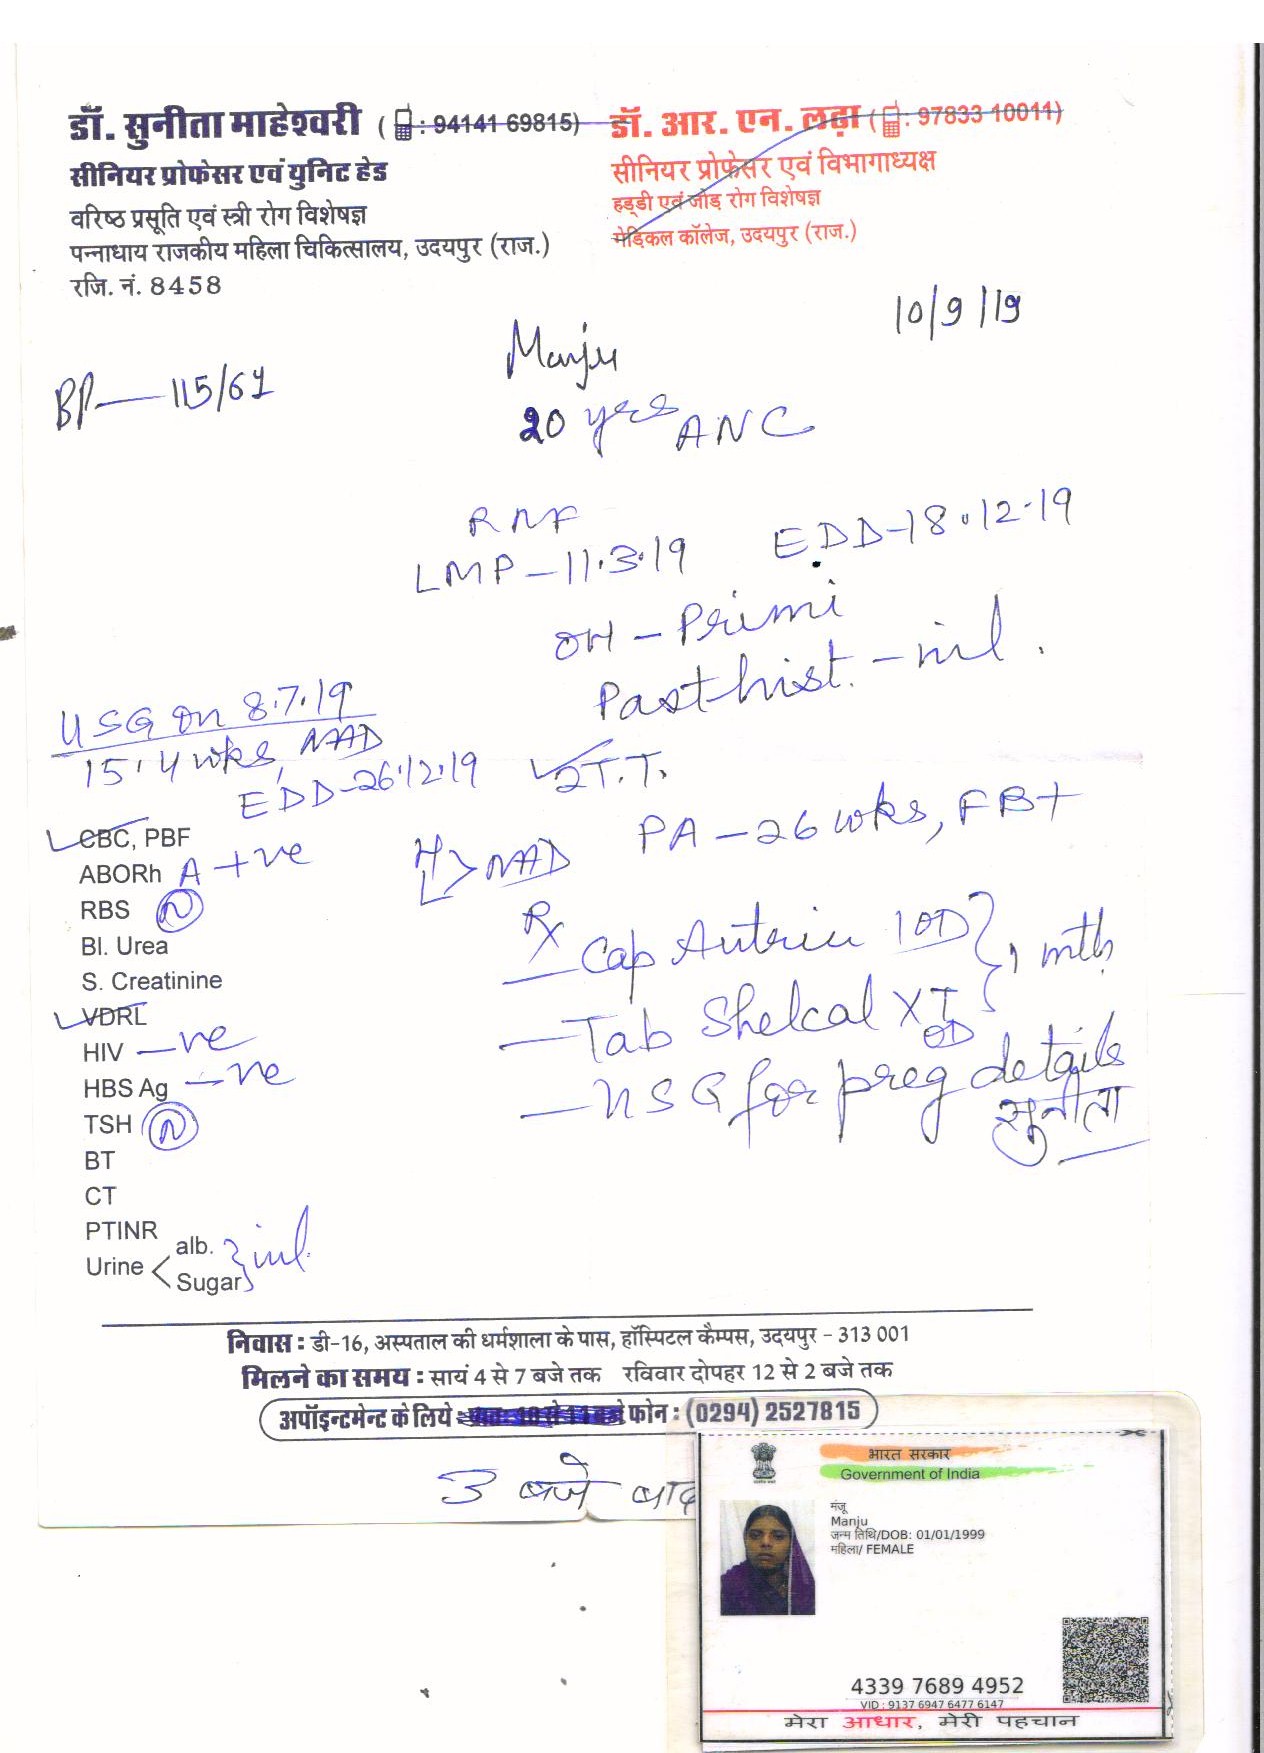 डॉ. सुनीता माहेश्वरी ( : 94141 69815)
सीनियर प्रोफेसर एवं युनिट हेड
वरिष्ठ प्रसूति एवं स्त्री रोग विशेषज्ञ
पन्नाधाय राजकीय महिला चिकित्सालय, उदयपुर (राज.)
रजि. नं. 8458
डॉ. आर. एन. लढ़ा ( : 97833 10011)
सीनियर प्रोफेसर एवं विभागाध्यक्ष
हड्डी एवं जोड़ रोग विशेषज्ञ
मेडिकल कॉलेज, उदयपुर (राज.)
10/9/19
Manju
BP — 115/61
20 yrs ANC
LMP - 11.3.19 EDD - 18.12.19
OH - Primi
Past hist. - nil.
USG on 8.7.19
15.4 wks, NAD
EDD - 26.12.19
2 T.T.
PA - 26 wks, FB+
H L > NAD
CBC, PBF
ABORh A +ve
RBS N
Bl. Urea
S. Creatinine
VDRL
HIV -ve
HBS Ag -ve
TSH N
BT
CT
PTINR
Urine < alb. Sugar } nil.
Rx
- Cap Autrin 1 OD } 1 mth
- Tab Shelcal XT OD
- USG for preg details
सुनीता
निवास : डी-16, अस्पताल की धर्मशाला के पास, हॉस्पिटल कैम्पस, उदयपुर - 313 001
मिलने का समय : सायं 4 से 7 बजे तक रविवार दोपहर 12 से 2 बजे तक
अपॉइन्टमेन्ट के लिये : प्रातः 10 से 11 बजे फोन : (0294) 2527815
3 बजे बाद
भारत सरकार
Government of India
मंजू
Manju
जन्म तिथि/DOB: 01/01/1999
महिला/ FEMALE
4339 7689 4952
VID : 9137 6947 6477 6147
मेरा आधार, मेरी पहचान